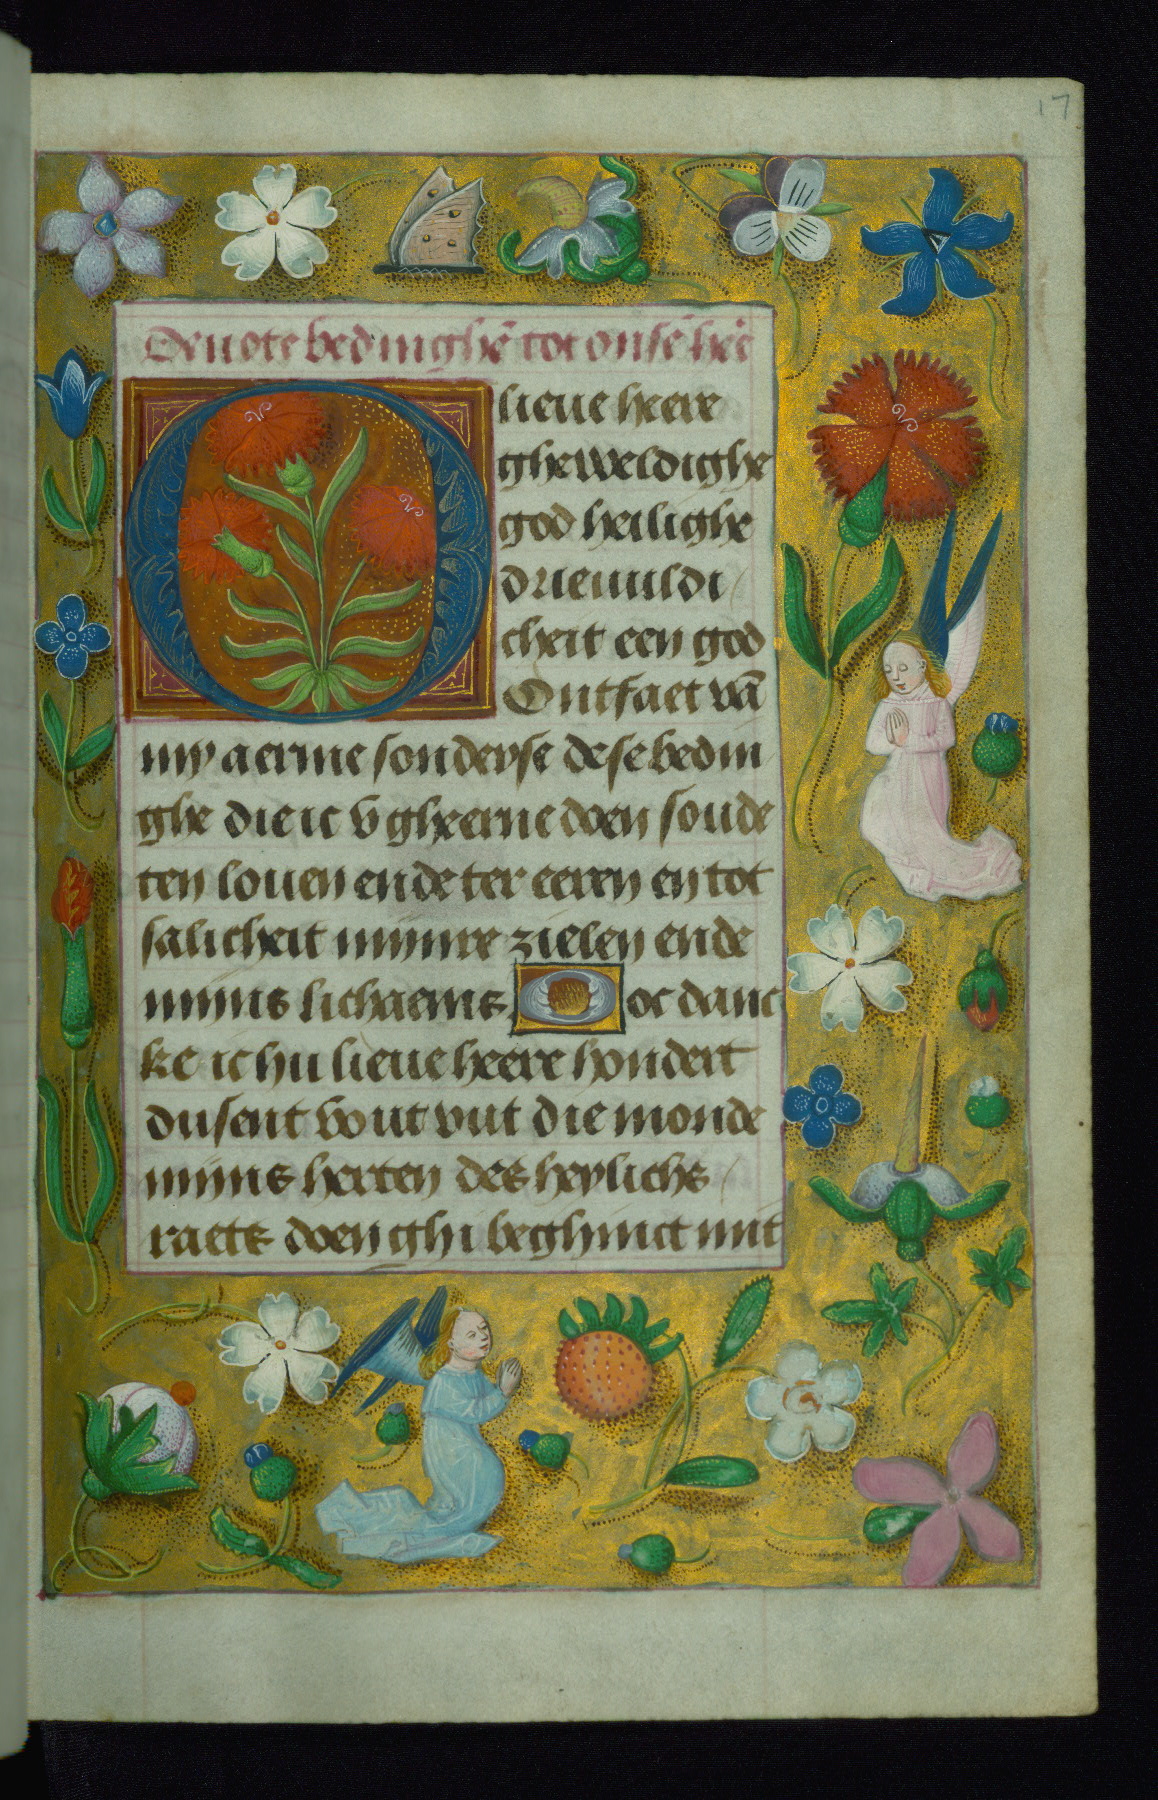 17
Deuote bedinghē tot onsē hēe
O lieue heere
gheweldighe
god heilighe
drieuuldi/
cheit een god
Ontfaet vā
my aerme sonderse dese bedin
ghe die ic v gheerne doen soude
ten louen ende ter eeren en tot
salicheit mijnre zielen ende
mijns lichaems Ooc danc
ke ic hu lieue heere hondert
dusent vout vut die monde
mijns herten des heylichs/
raets doen ghi beghinct mit